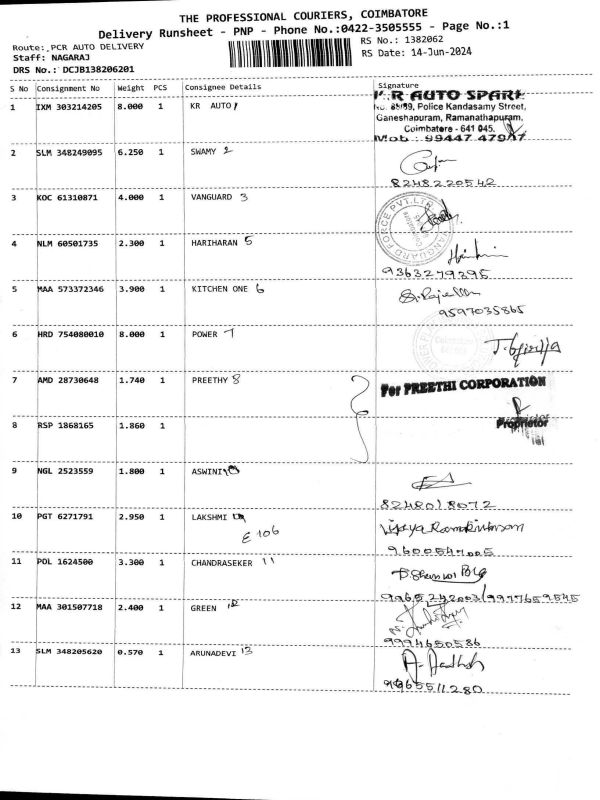 THE PROFESSIONAL COURIERS, COIMBATORE
Delivery Runsheet - PNP - Phone No.:0422-3505555 - Page No.:1
Route: PCR AUTO DELIVERY
RS No.: 1382062
Staff: NAGARAJ
RS Date: 14-Jun-2024
DRS No.: DCJB138206201
S No Consignment No Weight PCS Consignee Details Signature
1 IXM 303214205 8.000 1 KR AUTO 1
K R AUTO SPARE
No. 88/89, Police Kandasamy Street,
Ganeshapuram, Ramanathapuram,
Coimbatore - 641 045.
Mob: 99447 47947
2 SLM 348249095 6.250 1 SWAMY 2
8248220542
3 KOC 61310871 4.000 1 VANGUARD 3
VANGUARD FORCE PVT.LTD
4 NLM 60501735 2.300 1 HARIHARAN 5
9363279395
5 MAA 573372346 3.900 1 KITCHEN ONE 6
9597035865
6 HRD 754080010 8.000 1 POWER 7
7 AMD 28730648 1.740 1 PREETHY 8
For PREETHI CORPORATION
Proprietor
8 RSP 1868165 1.860 1
9 NGL 2523559 1.800 1 ASWINI 10
8248018072
10 PGT 6271791 2.950 1 LAKSHMI
E 106
Vijaya Ramakrishnan
9600547005
11 POL 1624500 3.300 1 CHANDRASEKER 11
12 MAA 301507718 2.400 1 GREEN 12
9994650586
13 SLM 348205620 0.570 1 ARUNADEVI 13
9965511280